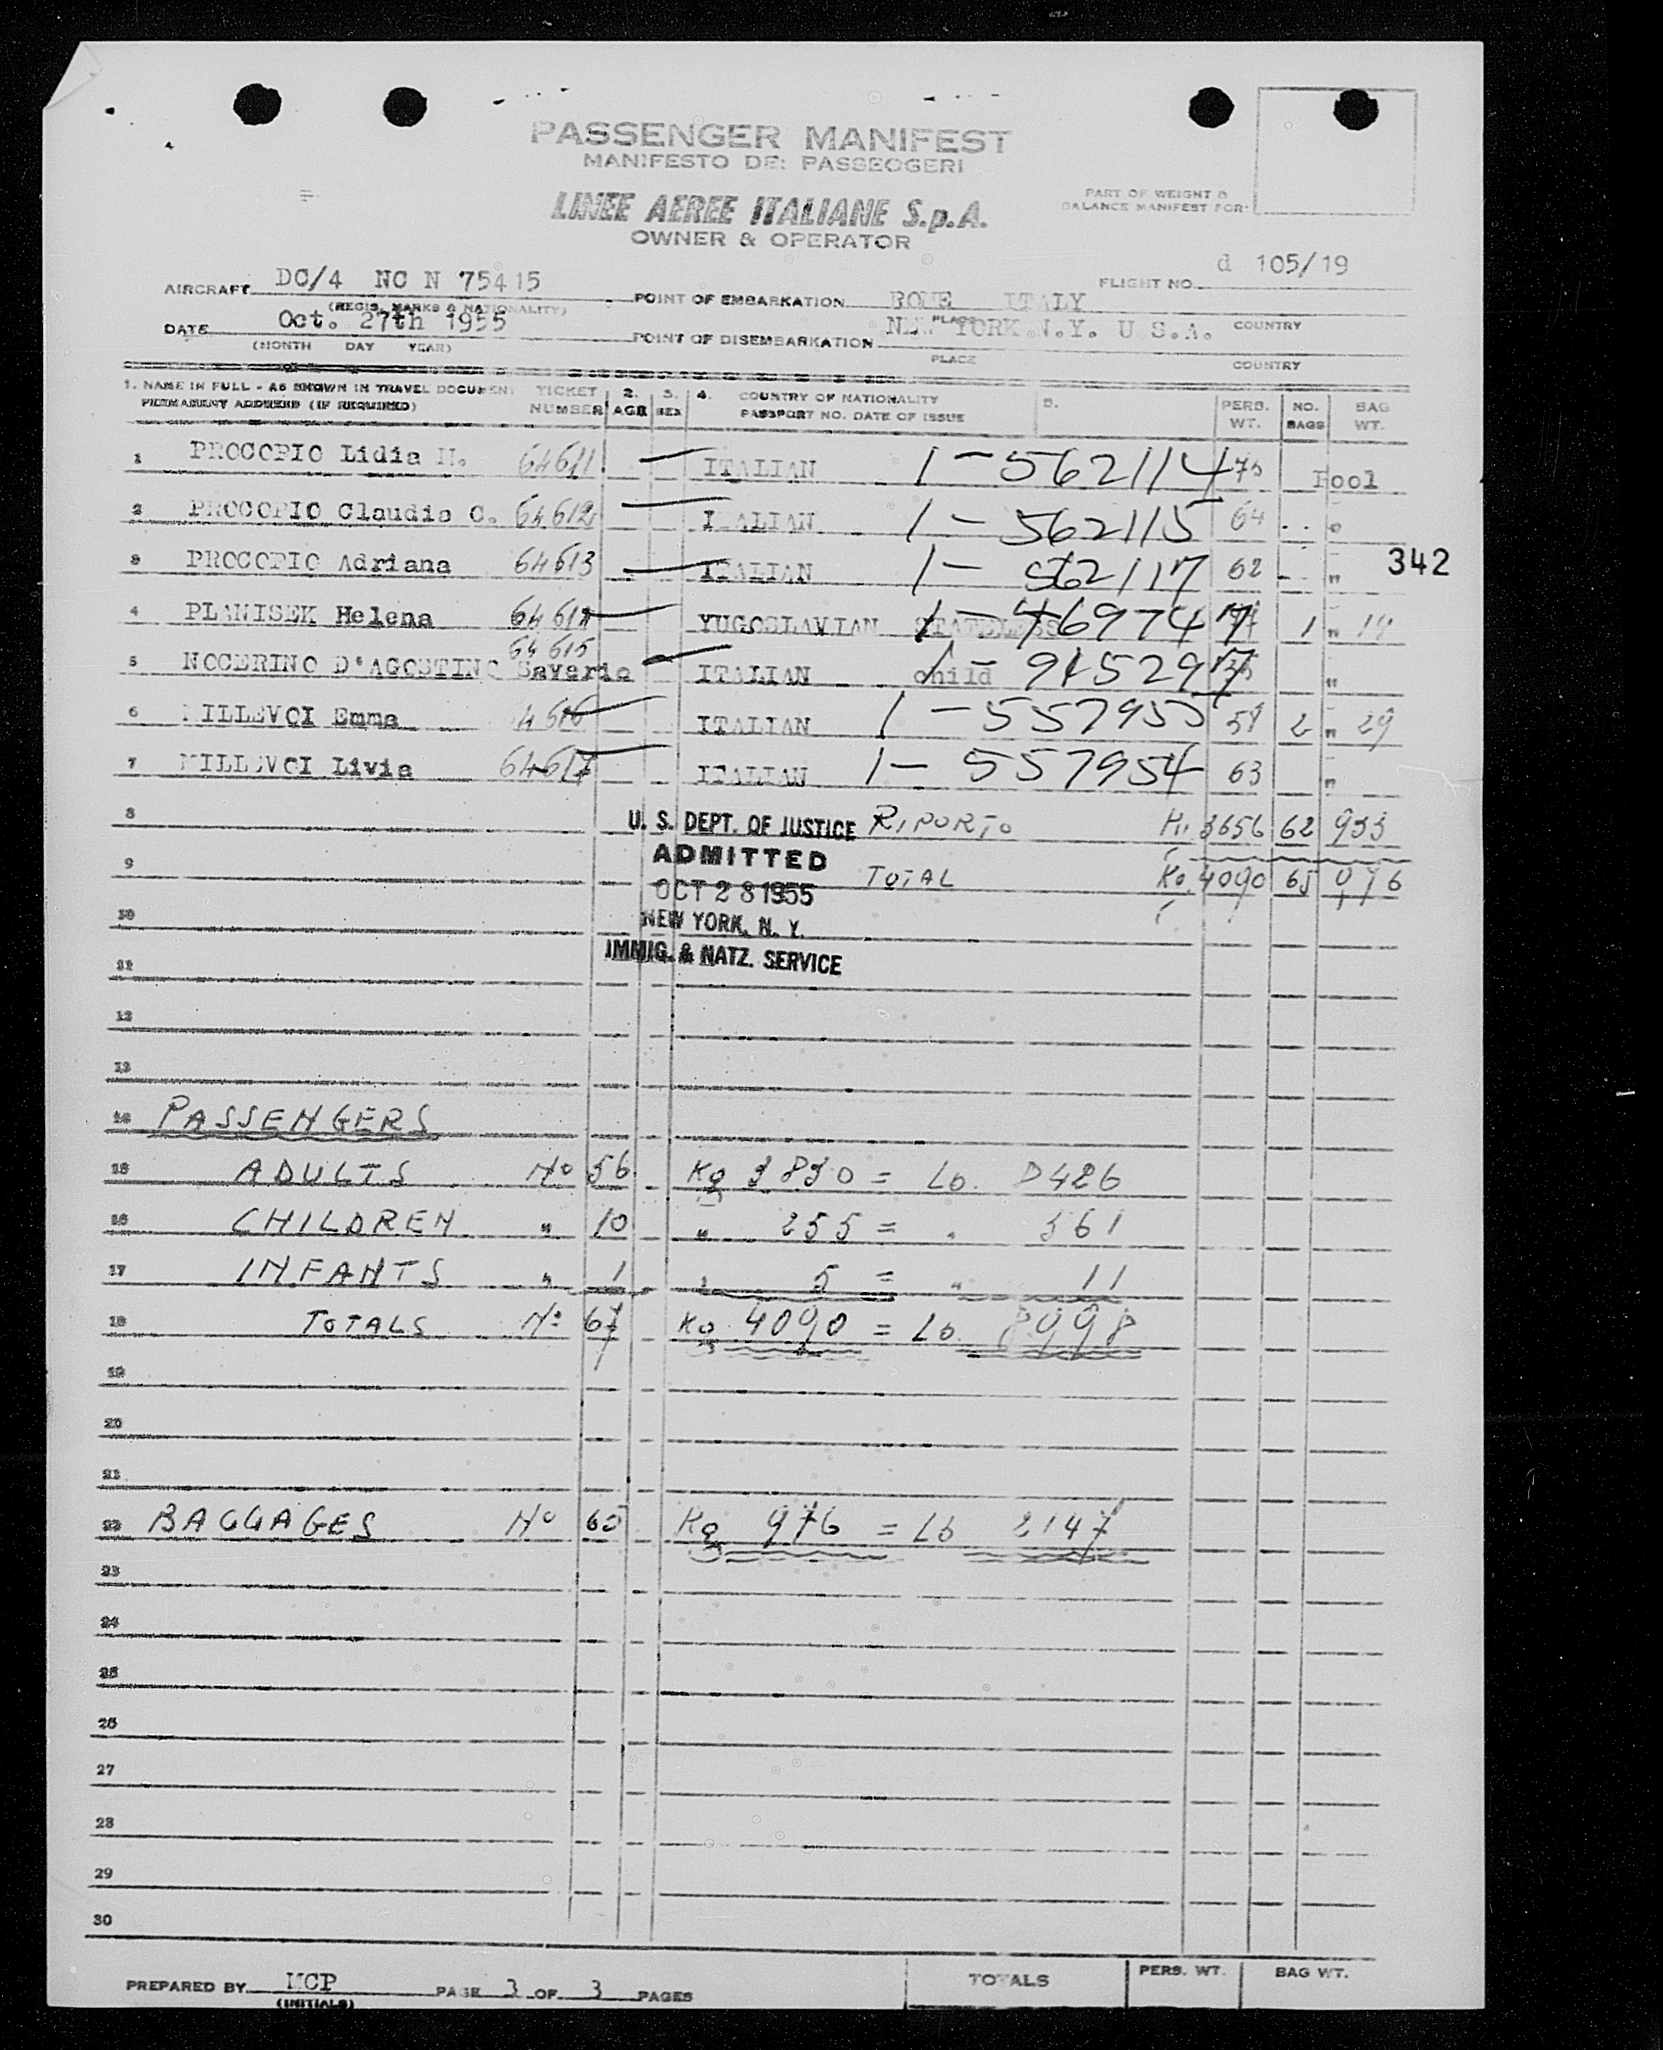 PASSENGER MANIFEST
MANIFESTO DEI PASSEGGERI
LINEE AEREE ITALIANE S.p.A.
OWNER & OPERATOR
PART OF WEIGHT &
BALANCE MANIFEST FOR:
AIRCRAFT DC/4 NC N 75415
(REGIS. MARKS & NATIONALITY)
POINT OF EMBARKATION ROME ITALY
PLACE COUNTRY
FLIGHT NO. d 105/19
DATE Oct. 27th 1955
(MONTH DAY YEAR)
POINT OF DISEMBARKATION NEW YORK N.Y. U S.A.
PLACE COUNTRY
1. NAME IN FULL - AS SHOWN IN TRAVEL DOCUMENT TICKET 2. 3. 4. COUNTRY OF NATIONALITY 5. PERS. NO. BAG
PERMANENT ADDRESS (IF REQUIRED) NUMBER AGE SEX PASSPORT NO. DATE OF ISSUE WT. BAGS WT.
1 PROCOPIO Lidia 64611 ITALIAN 1-562114 75 Pool
2 PROCOPIO Claudio C. 64612 ITALIAN 1-562115 64 "
3 PROCOPIO Adriana 64613 ITALIAN 1-562117 62 "
342
4 PLANISEK Helena 64614 YUGOSLAVIAN STATELESS 1 " 14
5 NOCERINO D'AGOSTINO Saverio 64615 ITALIAN child "
6 MILLEVOI Emma 64616 ITALIAN 1-557955 59 2 " 29
7 MILLEVOI Livia 64617 ITALIAN 1-557954 63 "
8 RIPORTO 3656 62 933
9 TOTAL Kg 4090 65 976
U. S. DEPT. OF JUSTICE
ADMITTED
OCT 28 1955
NEW YORK, N. Y.
IMMIG. & NATZ. SERVICE
10
11
12
13
14 PASSENGERS
15 ADULTS No 56 Kg 3830 = Lb. 8426
16 CHILDREN " 10 " 255 = " 561
17 INFANTS " 1 " 5 = " 11
18 TOTALS No 67 Kg 4090 = Lb. 8998
19
20
21
22 BAGGAGES No 65 Kg 976 = Lb 2147
23
24
25
26
27
28
29
30
PREPARED BY MCP PAGE 3 OF 3 PAGES
(INITIALS)
TOTALS PERS. WT. BAG WT.